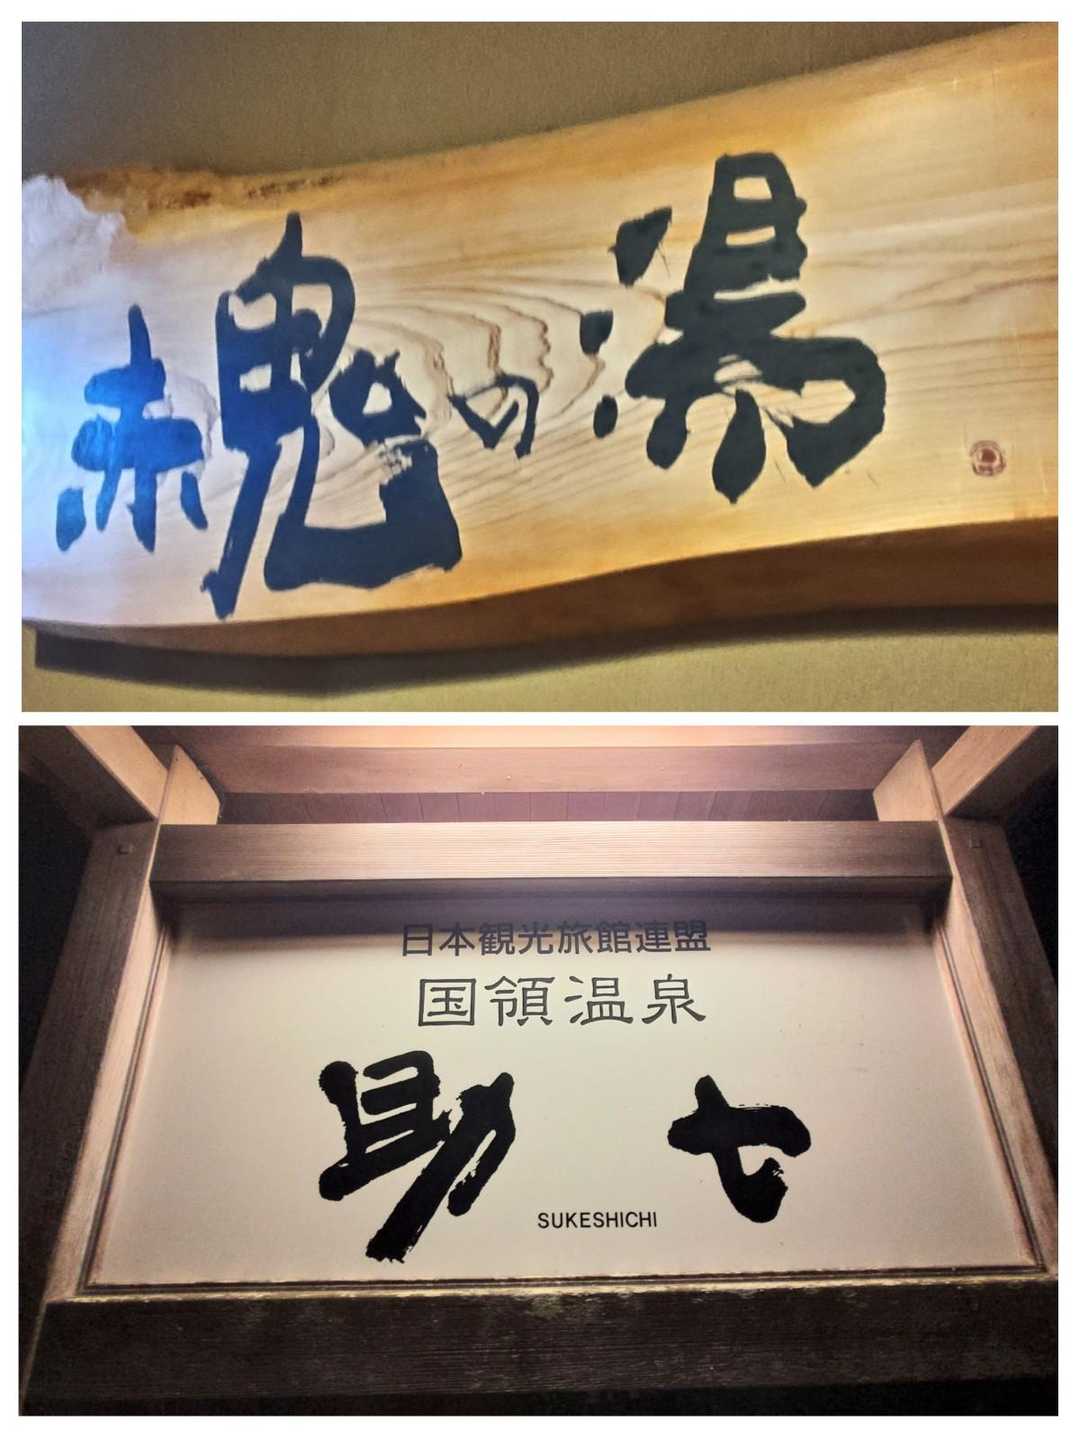 赤鬼の湯
日本観光旅館連盟
国領温泉
助七
SUKESHICHI